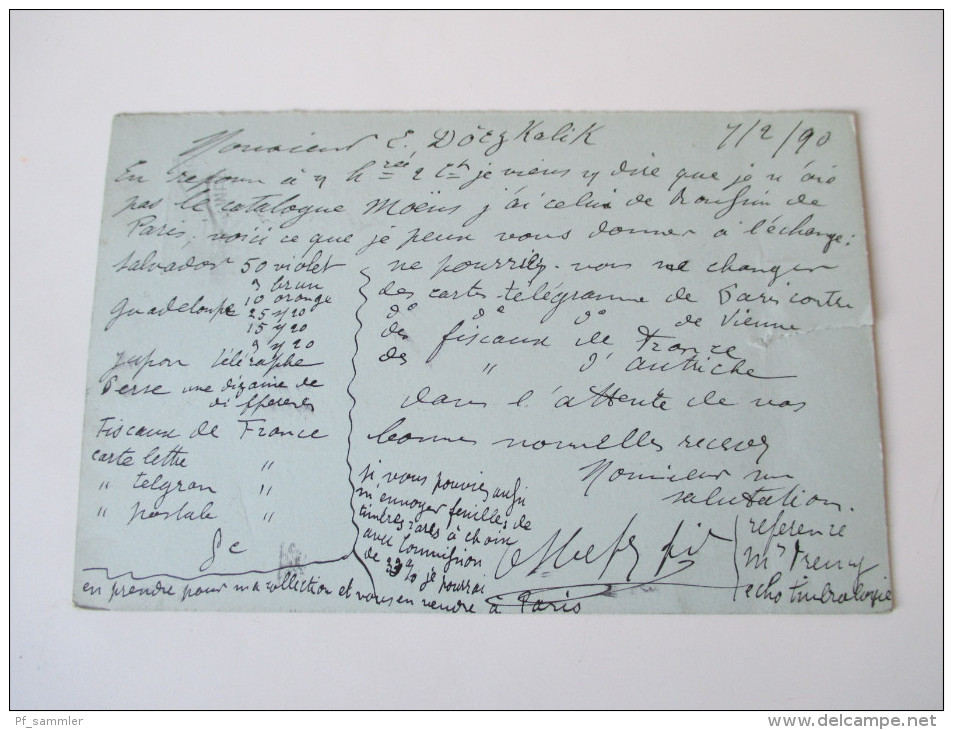 Monsieur E. Döczkalik 7/2/90
En repons à je viens y dire que je n'ai
pas le catalogue Moëns j'ai celui de de
Paris, voici ce que je peux vous donner à l'échange:
Salvador 50 violet
3 brun
10 orange
Guadeloupe 25 s/20
15 s/20
3 s/20
Japon télégraphe
Perse une dizaine de
differents
Fiscaux de France
carte lettre "
" telgram "
" postale "
&c
ne pourriez-vous me changer
des cartes-télégramme de Paris contre
do do do de Vienne
des fiscaux de France
des " d'autriche
dans l'attente de vos
bonnes nouvelles recevez
Monsieur
salutation.
si vous pouviez aussi
m'envoyer feuilles de
timbres-rares à choix
avec Commission
de je pourrai
en prendre pour ma collection et vous en vendre à Paris
reference
Mr
echo timbrologie
Pf_sammler
www.delcampe.net